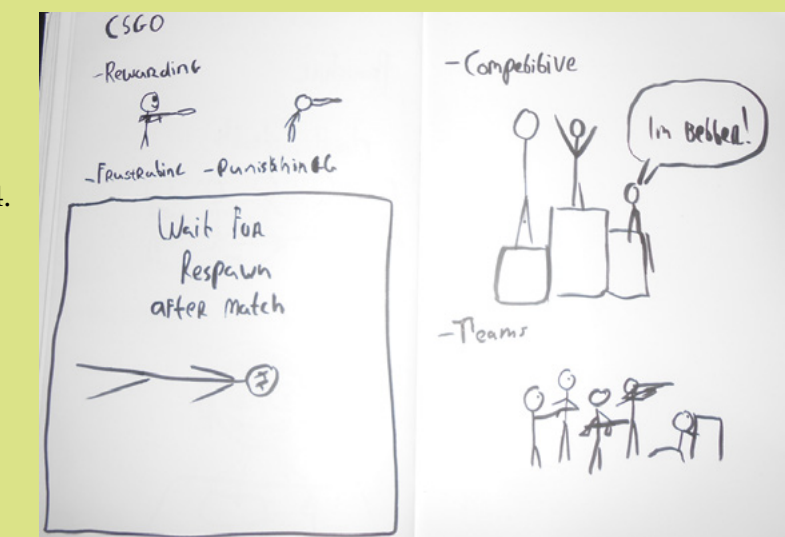 4.
CSGO
-Rewarding
-Frustrating -Punishing
Wait For
Respawn
after match
-Competitive
Im Better!
-Teams